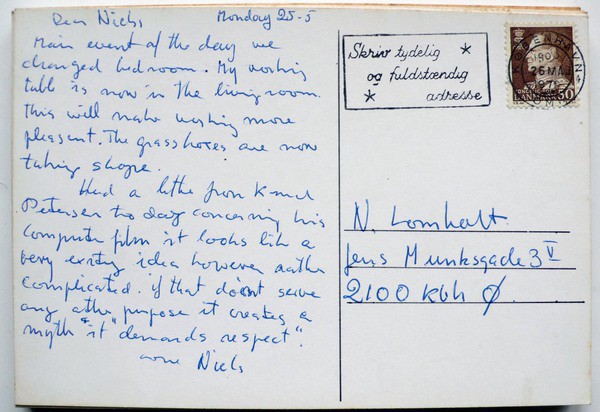 Dear Niels Monday 25-5
Main event of the day we
changed bedroom. My working
table is now in the livingroom.
this will make working more
pleasant. The grass boxes are now
taking shape.
Had a letter from Knud
Petersen to day concerning his
computer film it looks like a
very exiting idea however rather
complicated. if that doesnt serve
any other purpose it creates a
myth "it demands respect".
Niels
Skriv tydelig
og fuldstændig
adresse
KØBENHAVN
26 MAJ
DANMARK 50
N. Lomholt
Jens Munksgade 3 V
2100 Kbh Ø.